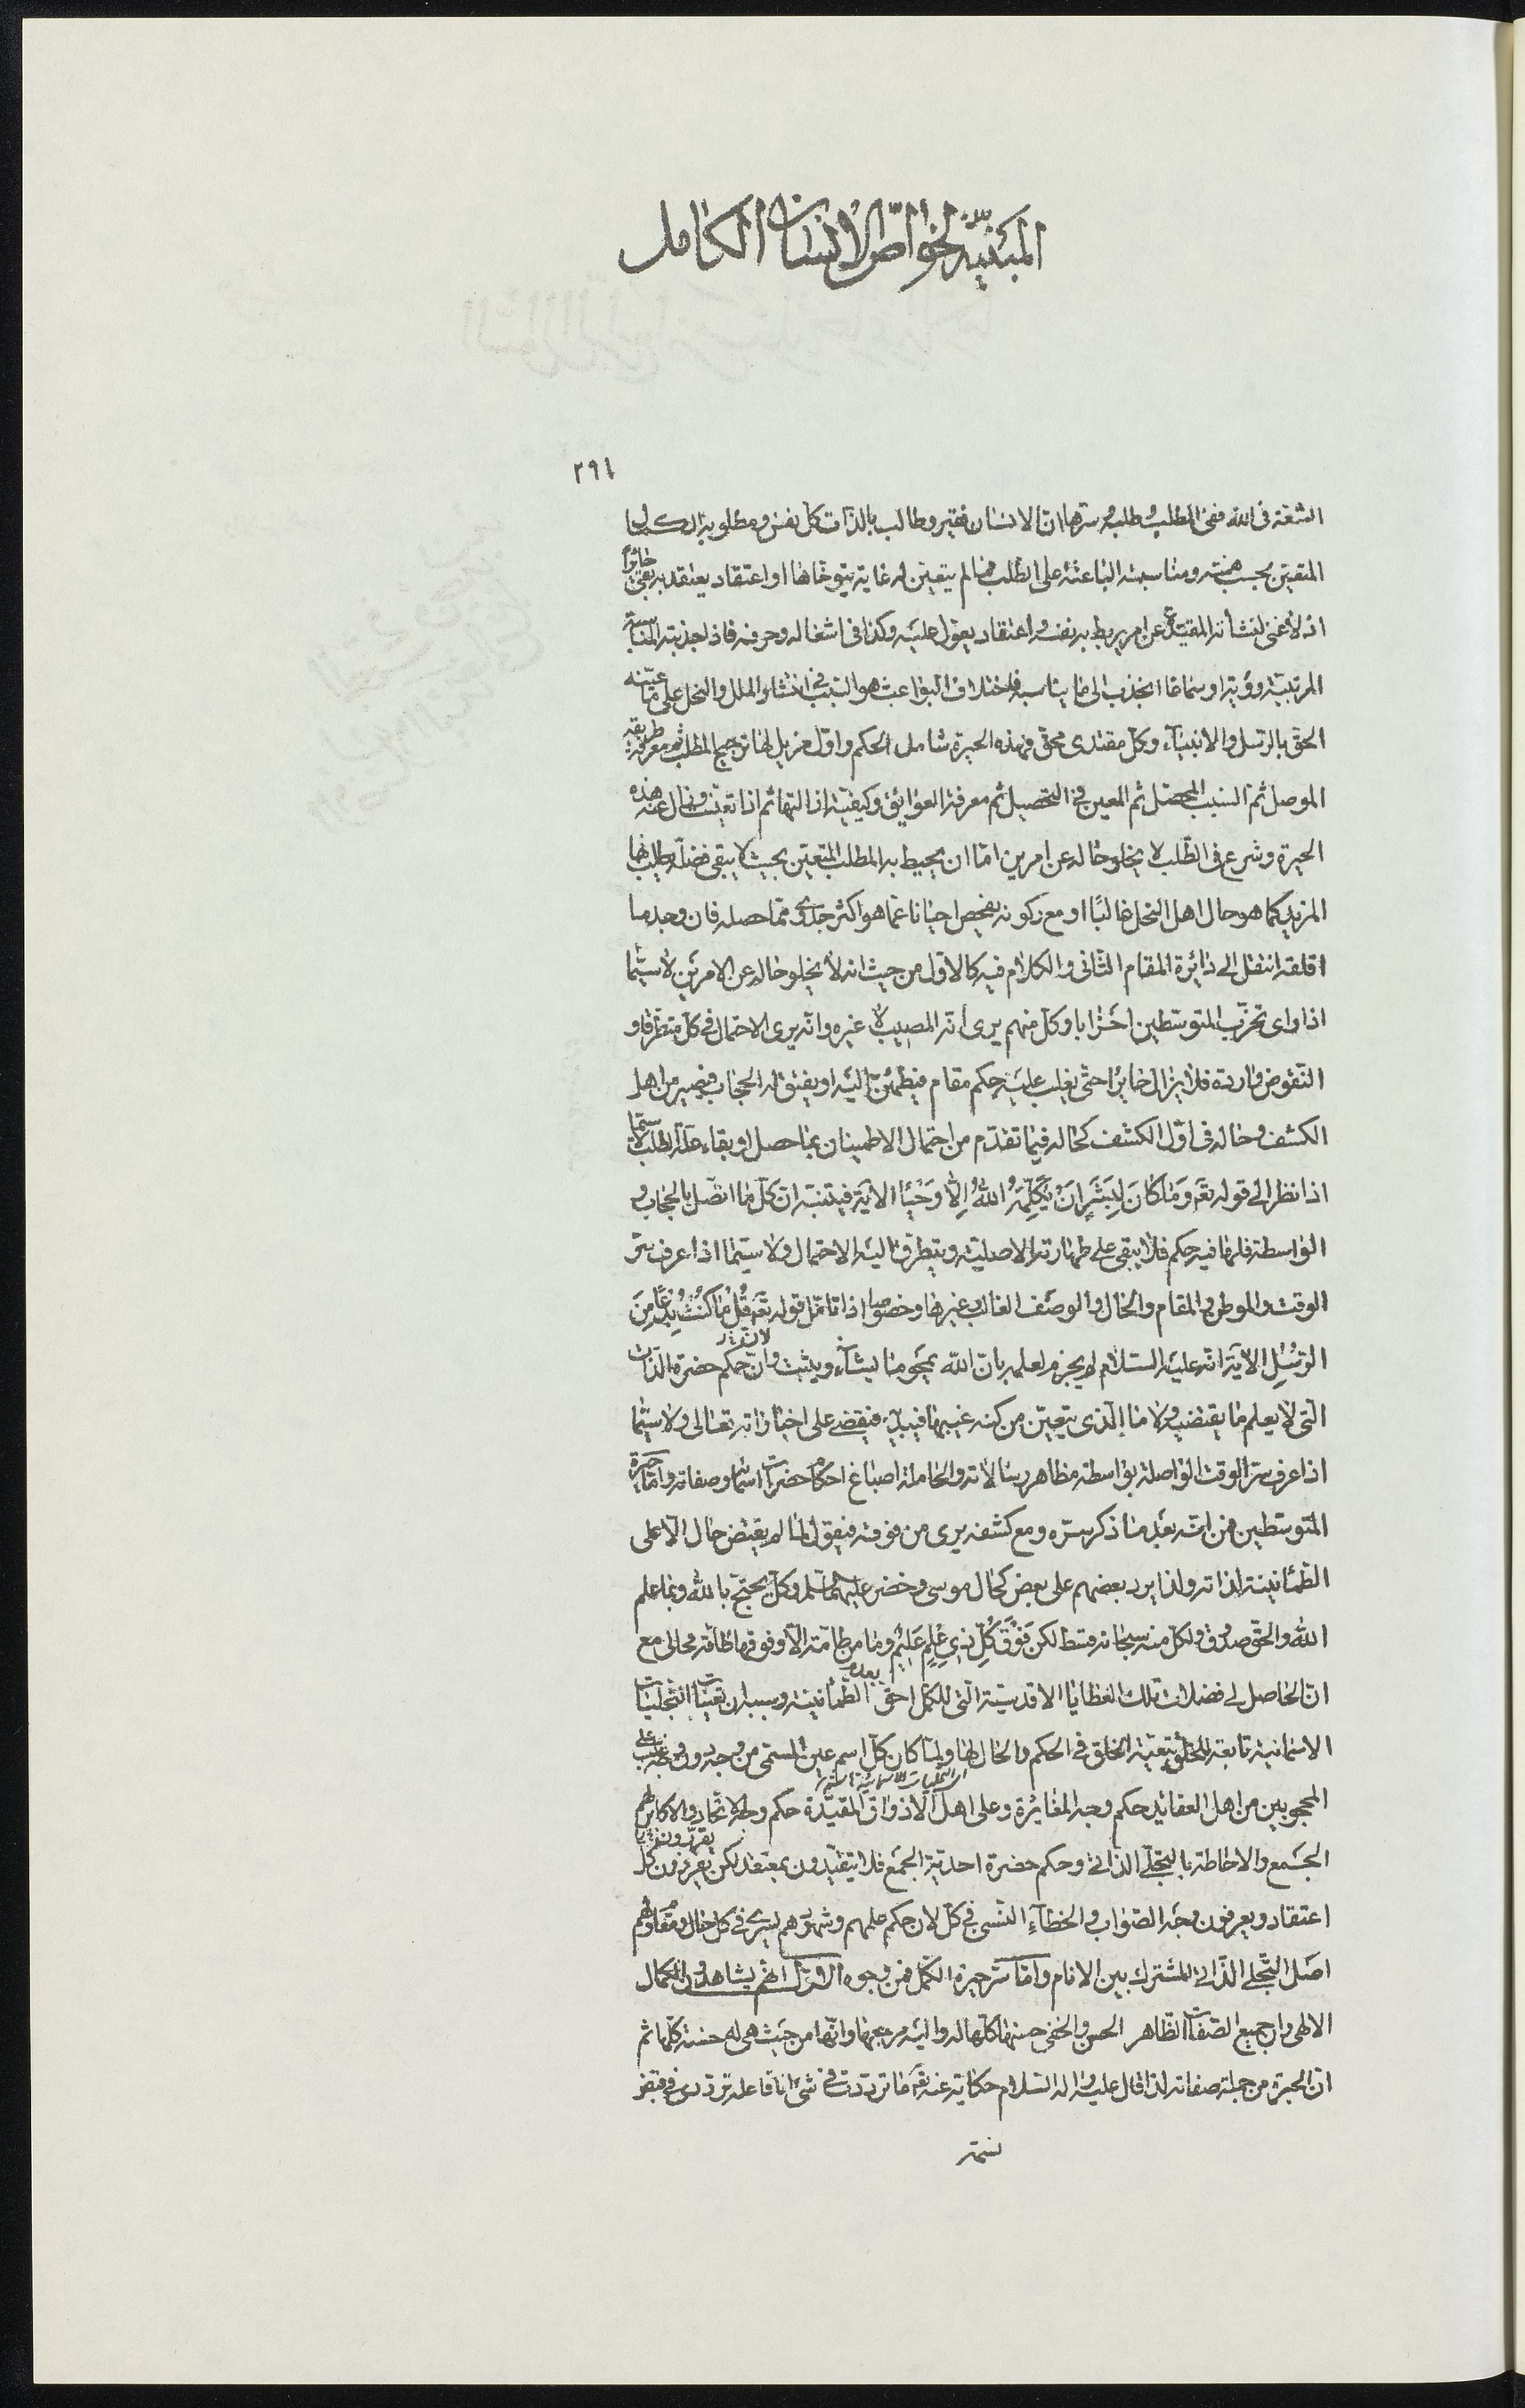 المبيّنة لخواصّ الانسان الكامل
٢٩١
الشغة فى الله ففى المطلب وطلبه سترها ان الانسان فقير وطالب بالذات كل نفس ومطلوبه الكمال
المتعين بحسب همته ومناسبته الباعثة على الطلب فما لم يتعين له غاية يتوخاها او اعتقاد يعتقد به بقى حائرا
اذ لا غنى لنشأته المقيدة عن امر يربط به نفسه واعتقاد يعول عليه وكذا فى اشغاله وحرفه فاذا جذبته المناسبة
المرتبية رؤية او سماعا انجذب الى ما يناسبه فاختلاف البواعث هو السبب فى انتشار الملل والنحل على ما عينه
الحق بالرسل والانبياء وكل مقتدى محق فهذه الحيرة شاملة الحكم واول مزيل لها ترجيح المطلب ثم معرفة طريقه
الموصل ثم السبب المحصل ثم المعين فى التحصيل ثم معرفة العوايق وكيفية ازالتها ثم اذا تعينت وزال عنه هذه
الحيرة وشرع فى الطلب لا يخلو حاله عن امرين اما ان يحيط به المطلب المتعين بحيث لا يبقى فضلة يطلب بها
المزيد كما هو حال اهل النحل غالبًا او مع ركونه يفحص احيانا عما هو اكثر جدوى مما حصله فان وجد ما
اقلقه انتقل الى دائرة المقام الثانى والكلام فيه كالاول من حيث انه لا يخلو حاله عن الامرين لا سيما
اذا راى تحزب المتوسطين احزابا وكل منهم يرى انه المصيب لا غيره وانه يرى الاحتمال فى كل متطرقا و
النقوض واردة فلا يزال حايرا حتى يغلب عليه حكم مقام فيطمئن اليه او يفتق له الحجاب فيصير من اهل
الكشف وحاله فى اول الكشف كحاله فيما تقدم من احتمال الاطمينان بما حصل او بقاء علة الطلب لا سيما
اذا نظر الى قوله تع وَمَا كَانَ لِبَشَرٍ اَنْ يُكَلِّمَهُ اللهُ اِلَّا وَحْيًا الاية فيتنبه ان كل ما اتصل بالحجاب و
الواسطة فلها فيه حكم فلا يبقى على طهارته الاصلية ويتطرق اليه الاحتمال ولا سيما اذا عرف سر
الوقت والموطن والمقام والحال والوصف الغالب وغيرها وخصوصا اذا تامل قوله تع قُلْ مَا كُنْتُ بِدْعًا مِنَ
الرُّسُلِ الاية انه عليه السلام لم يجزم لعلمه بان الله يمحو ما يشآء ويثبت وان حكم حضرة الذات
لان
التى لا يعلم ما يقتضيه ولا ما الذى يتعين من كنه غيبها فيبديه فيقضى على اخباراته تعالى ولا سيما
اذا عرف سر الوقت الواصلة بواسطة مظاهر رسالاته والحاملة اصباغ احكام حضرات اسمائه وصفاته واما حيرة
المتوسطين فمن انه بعد ما ذكر سره ومع كشفه يرى من فوقه فيقول لما لم يقتض حال الاعلى
الطمانينة لذاته ولذا يرد بعضهم على بعض كحال موسى وخضر عليهما السلام وكل يحتج بالله وبما علم
الله والحق صدوق ولكل منه سبحانه قسط لكن فَوْقَ كُلِّ ذِى عِلْمٍ عَلِيمٌ وما من طامة الا وفوقها طامة محالى مع
ان الحاصل لى فضلات تلك العطايا الاقدسية التى للكمل احق بعدم الطمانينة وسببه ان تعينات التجليات
الاسمائية تابعة للخلق بتبعية الخلق فى الحكم والحال لها ولما كان كل اسم عين المسمى من وجه دون وجه غلب على
المحجوبين من اهل العقايد حكم وجه المغايرة وعلى اهل الاذواق المقيدة حكم وجه الاتحاد والاكابر لهم
الجمع والاحاطة بالتجلى الذاتى وحكم حضرة احدية الجمع فلا يتقيدون بمعتقد لكن يقررون كل
اعتقاد ويعرفون وجه الصواب والخطاء النسبى فى كل لان حكم علمهم وشهودهم يسرى فى كل حال ومقام ولهم
اصل التجلى الذاتى المشترك بين الانام واما سر حيرة الكمل فمن وجوه الاول انهم يشاهدون الكمال
الالهى وان جميع الصفات الظاهر الحسن والخفى حسنها كلها له واليه مرجعها وانها من حيث هى له حسنة كلها ثم
ان الحيرة من جملة صفاته لذا قال عليه واله السلام حكاية عنه تع ما ترددت فى شئ انا فاعله ترددى فى قبض
نسمة